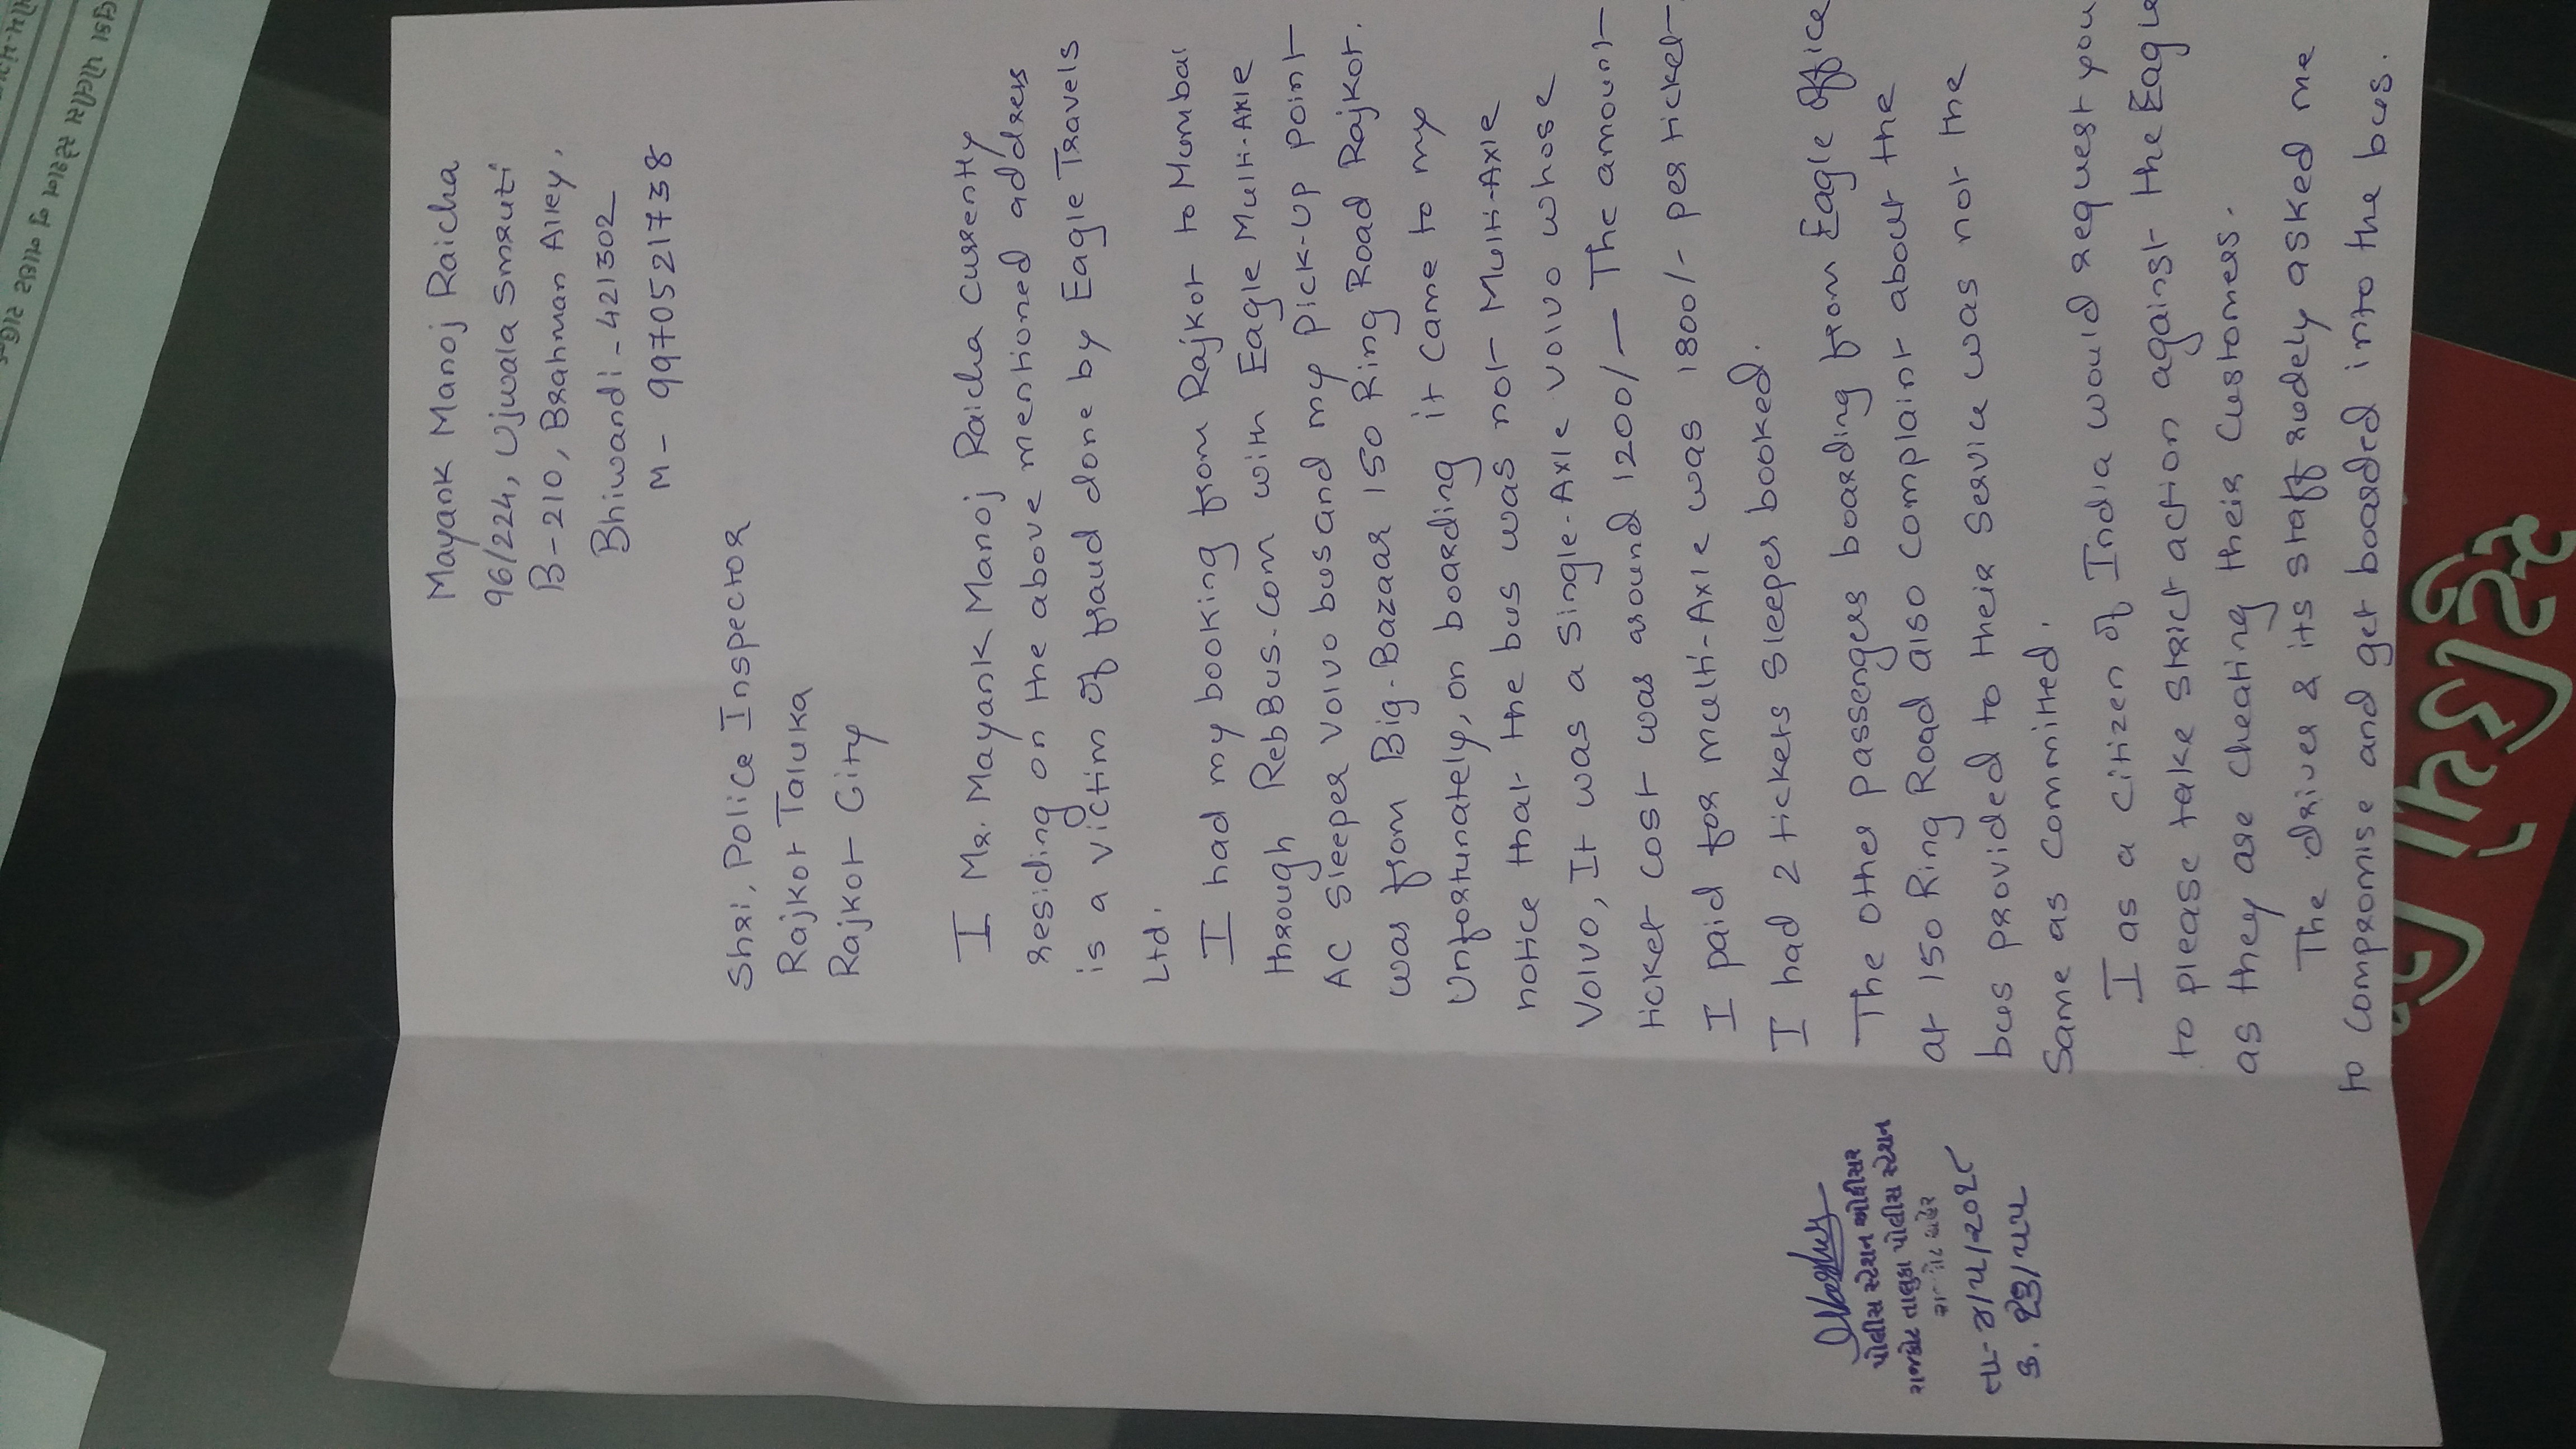 Mayank Manoj Raicha
96/224, Ujwala Smruti
B-210, Brahman Alley,
Bhiwandi-421302
M - 9970521738
Shri, Police Inspector
Rajkot Taluka
Rajkot City
I Mr. Mayank Manoj Raicha Currently
residing on the above mentioned address
is a victim of fraud done by Eagle Travels
Ltd.
I had my booking from Rajkot to Mumbai
through RebBus.com with Eagle Multi-Axle
AC Sleeper Volvo bus and my Pick-up point
was from Big-Bazaar 150 Ring Road Rajkot.
Unfortunately, on boarding it came to my
notice that the bus was not Multi-Axle
Volvo, It was a single-Axle volvo whose
ticket cost was around 1200/- The amount
I paid for multi-Axle was 1800/- per ticket
I had 2 tickets sleeper booked.
The other passengers boarding from Eagle office
at 150 Ring Road also complaint about the
bus provided to their service was not the
Same as committed.
I as a citizen of India would request you
to please take strict action against the Eagle
as they are cheating their customers.
The driver & its staff rudely asked me
to compromise and get boarded into the bus.
પોલીસ સ્ટેશન ઓફીસર
રાજકોટ તાલુકા પોલીસ સ્ટેશન